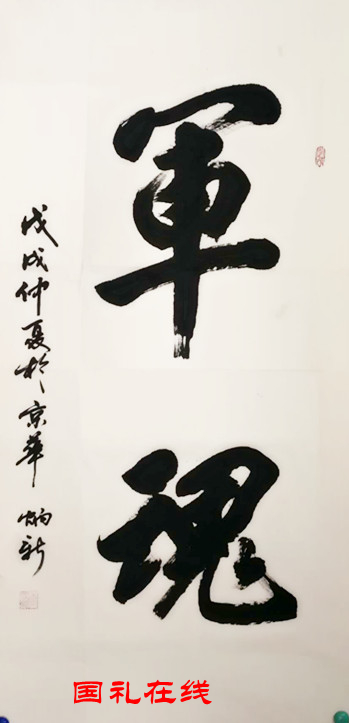 軍魂
戊戌仲夏於京華 炳新
国礼在线